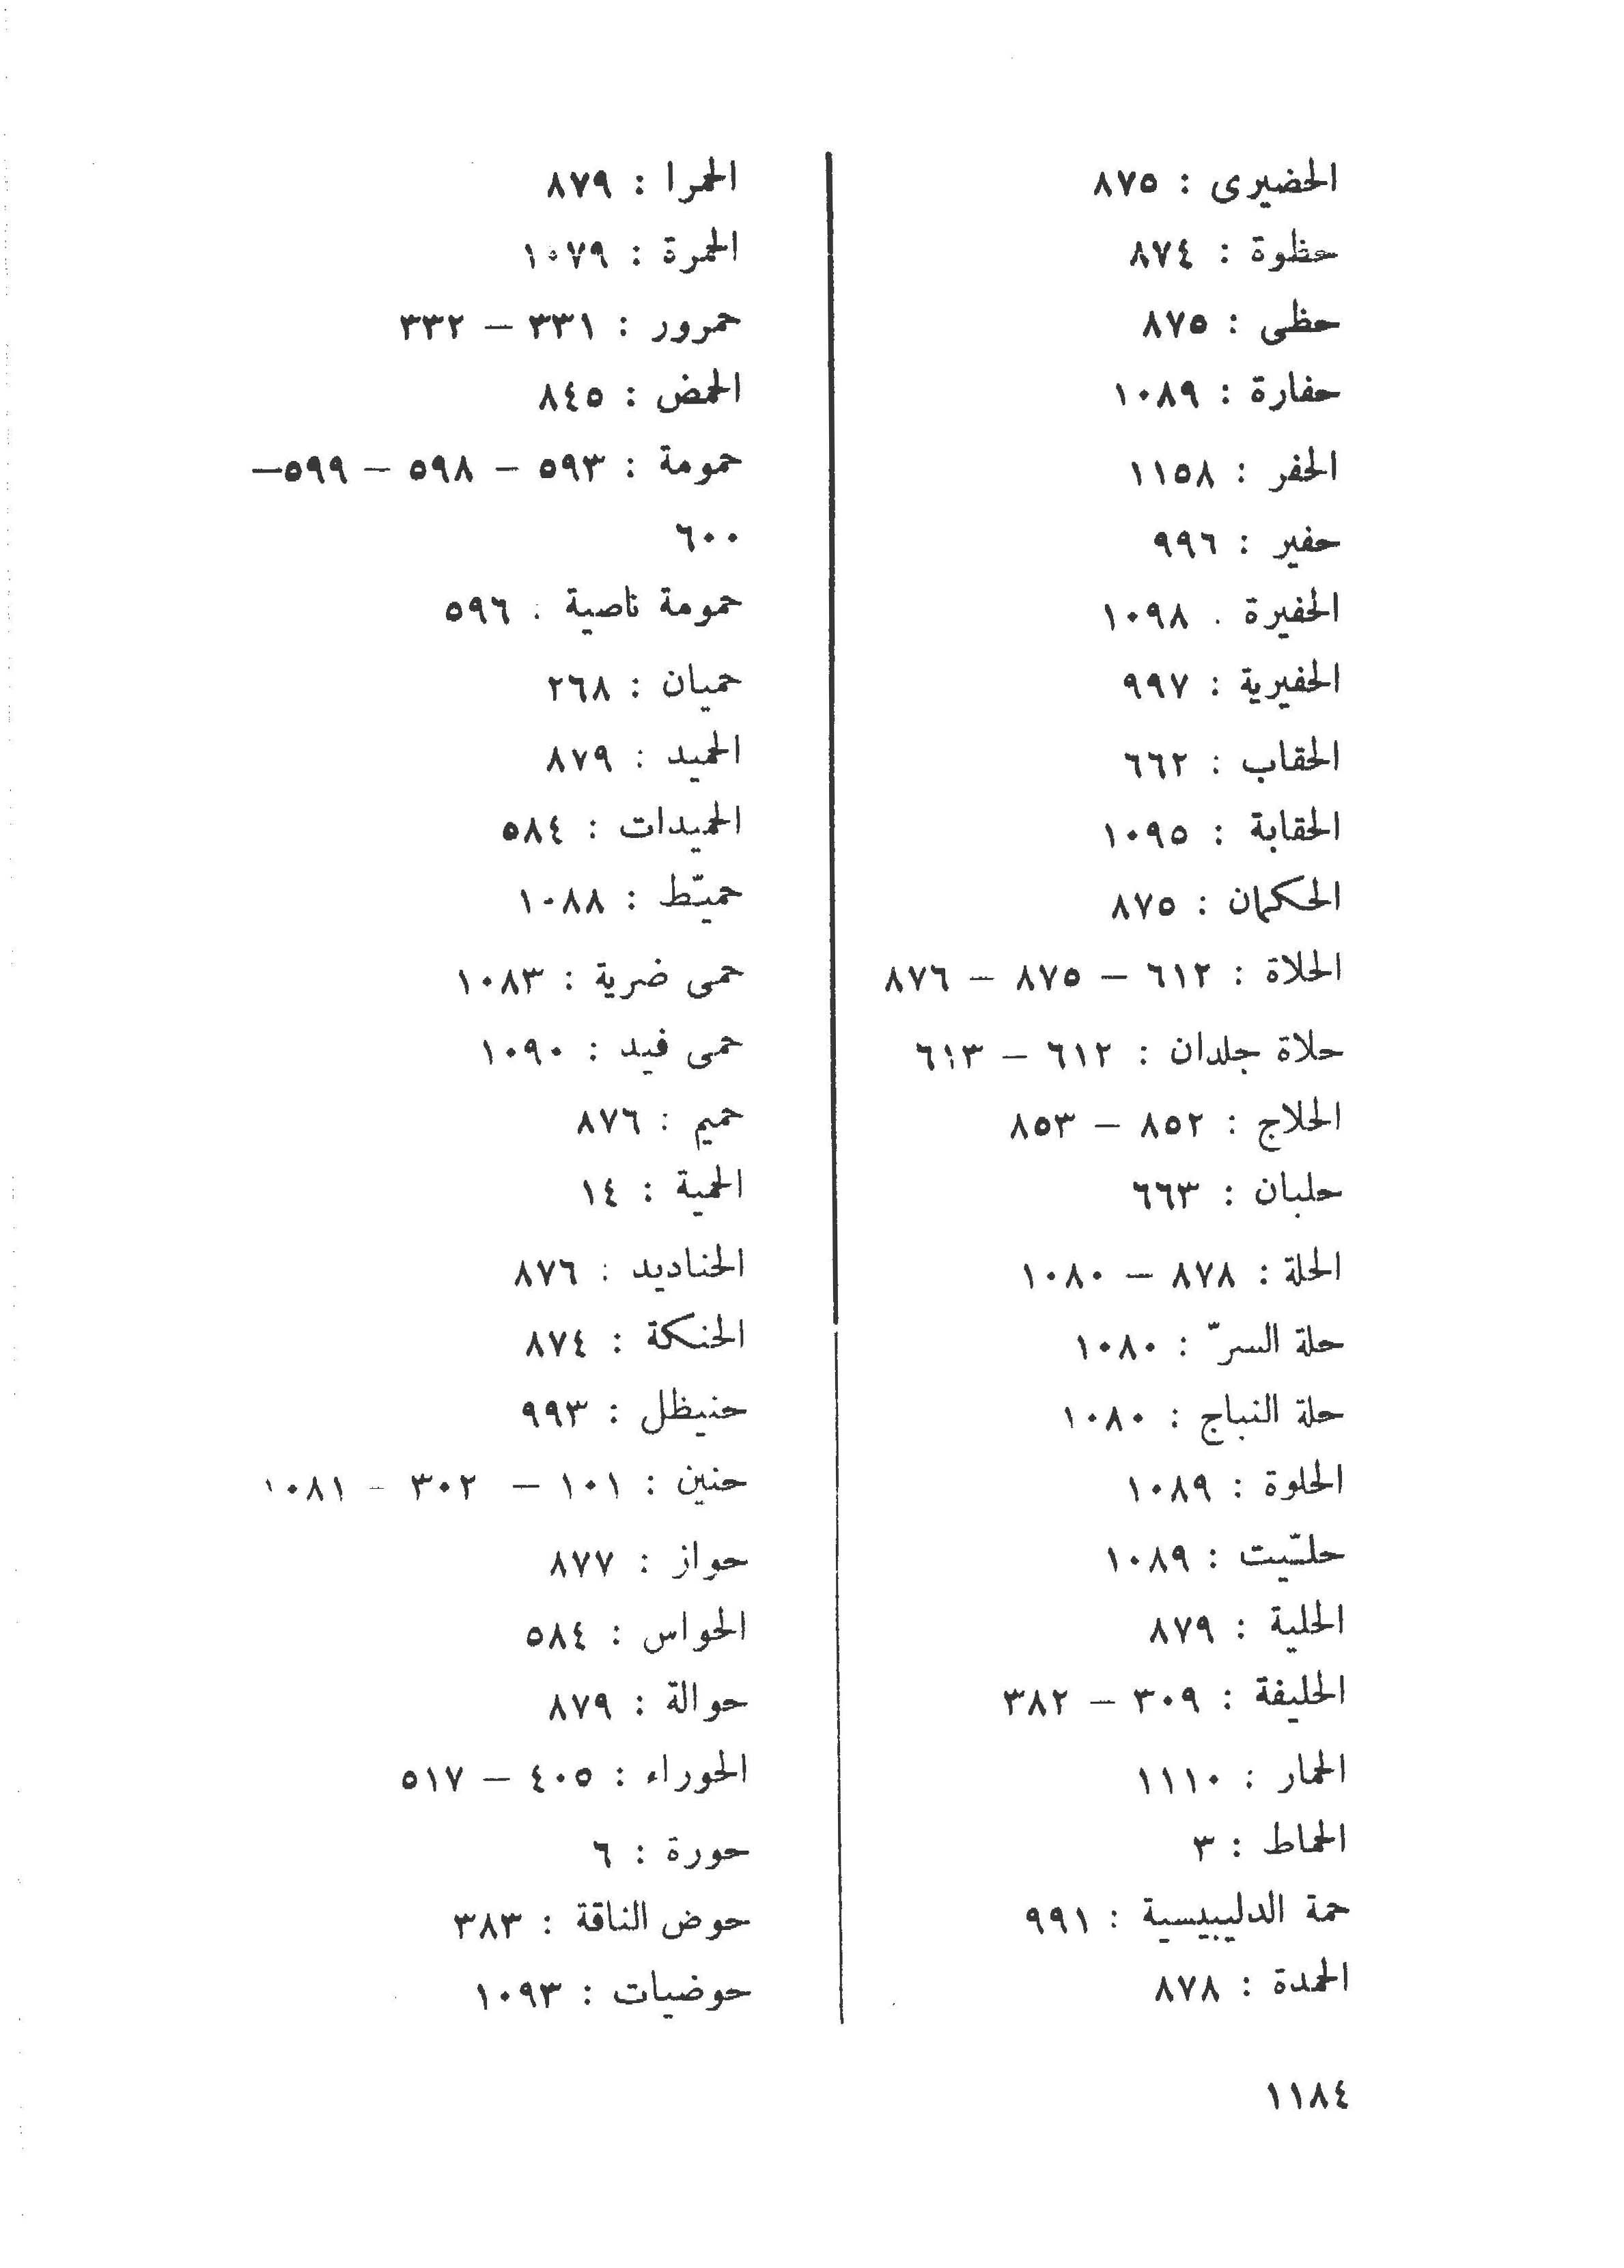 الحضيرى : ٨٧٥
حظوة : ٨٧٤
حظى : ٨٧٥
حفارة : ١٠٨٩
الحفر : ١١٥٨
حفير : ٩٩٦
الحفيرة . ١٠٩٨
الحفيرية : ٩٩٧
الحقاب : ٦٦٢
الحقابة : ١٠٩٥
الحكمان : ٨٧٥
الحلاة : ٦١٢ – ٨٧٥ – ٨٧٦
حلاة جلدان : ٦١٢ – ٦١٣
الحلاج : ٨٥٢ – ٨٥٣
حلبان : ٦٦٣
الحلة : ٨٧٨ – ١٠٨٠
حلة السرّ : ١٠٨٠
حلة النباج : ١٠٨٠
الحلوة : ١٠٨٩
حلّيت : ١٠٨٩
الحلية : ٨٧٩
الحليفة : ٣٠٩ – ٣٨٢
الحمار : ١١١٠
الحماط : ٣
حمة الدليبيسية : ٩٩١
الحمدة : ٨٧٨
الحمرا : ٨٧٩
الحمرة : ١٠٧٩
حمرور : ٣٣١ – ٣٣٢
الحمض : ٨٤٥
حمومة : ٥٩٣ – ٥٩٨ – ٥٩٩–
٦٠٠
حمومة ناصية : ٥٩٦
حميان : ٢٦٨
الحميد : ٨٧٩
الحميدات : ٥٨٤
حميّط : ١٠٨٨
حمى ضرية : ١٠٨٣
حمى فيد : ١٠٩٠
حميم : ٨٧٦
الحمية : ١٤
الحناديد : ٨٧٦
الحنكة : ٨٧٤
حنيظل : ٩٩٣
حنين : ١٠١ – ٣٠٢ – ١٠٨١
حواز : ٨٧٧
الحواس : ٥٨٤
حوالة : ٨٧٩
الحوراء : ٤٠٥ – ٥١٧
حورة : ٦
حوض الناقة : ٣٨٣
حوضيات : ١٠٩٣
١١٨٤